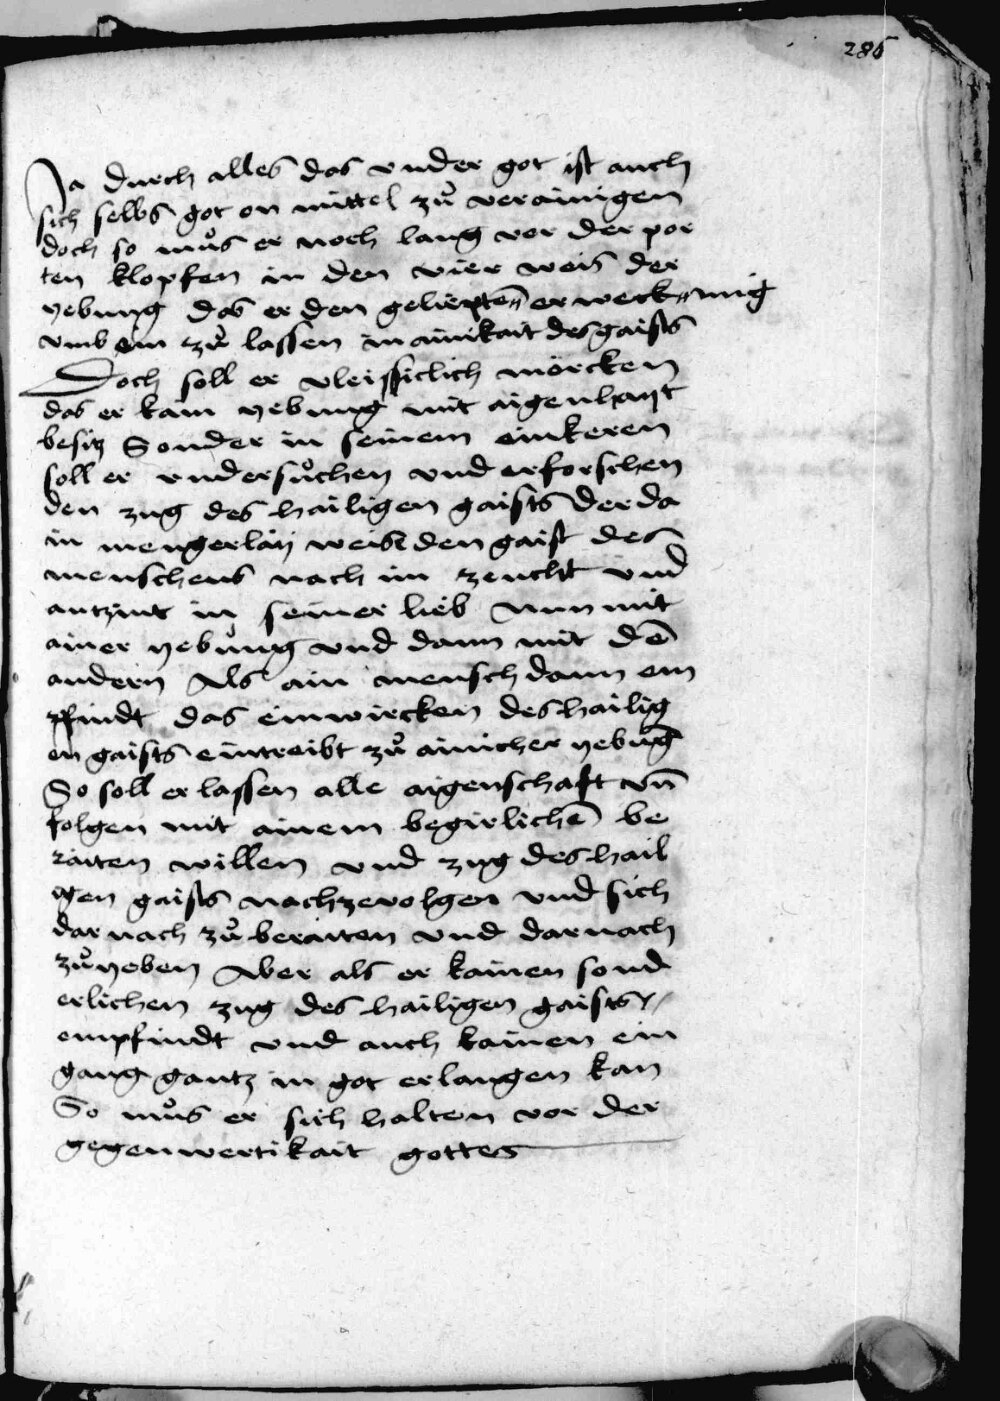 286
Ja durch alles das vnder got ist auch
sich selbs got on mittel zů verainigen
doch so můs er noch lang vor der por
ten klopfen in den vier weis der
yebung das er den geliepten erweck mig
vmb ein zů lassen in ainikait des gaists
Doch soll er vleissiclich mörcken
das er kain yebung mit aigenhayt
besitz Sonder in seinem einkeren
soll er vndersůchen vnd erforschen
den zug des hailigen gaists der da
in mengerlaÿ weis den gaist des
menschens nach im zeucht vnd
antzint in seiner lieb Nun mit
ainer yebung vnd dann mit dē
andern Als ain mensch dann em
pfindt das einwircken des hailig
en gaists eintreibt zů ainicher yebūg
So soll er lassen alle aigenschaft vn̄
folgen mit ainem begirlichē be
raitten willen vnd zug des hail
gen gaists nachzevolgen vnd sich
dar nach zů beraitten vnd darnach
zů yeben Aber als er kainen sond
erlichen zug des hailigen gaists
empfindt vnd auch kainen ein
gang gantz in got erlangen kan
So můs er sich halten vor der
gegenwertikait gottes